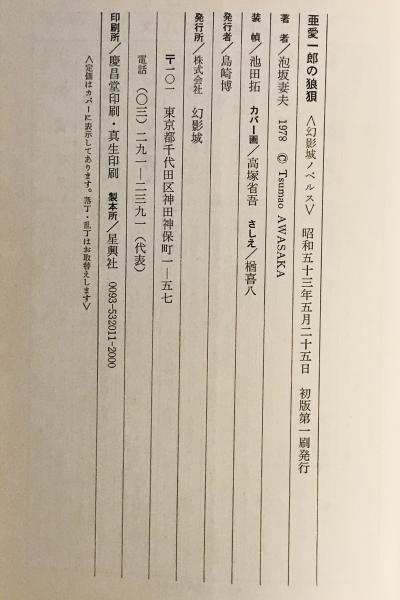 亜愛一郎の狼狽 〈幻影城ノベルス〉 昭和五十三年五月二十五日 初版第一刷発行
著者／泡坂妻夫 1978 © Tsumao AWASAKA
装幀／池田拓 カバー画／高塚省吾 さしえ／楢喜八
発行者／島崎博
発行所／株式会社 幻影城
〒一〇一 東京都千代田区神田神保町一―五七
電話 （〇三）二九一―二三九一（代表）
印刷所／慶昌堂印刷・真生印刷 製本所／星興社 0093-532011-2000
〈定価はカバーに表示してあります。落丁・乱丁はお取替えします〉